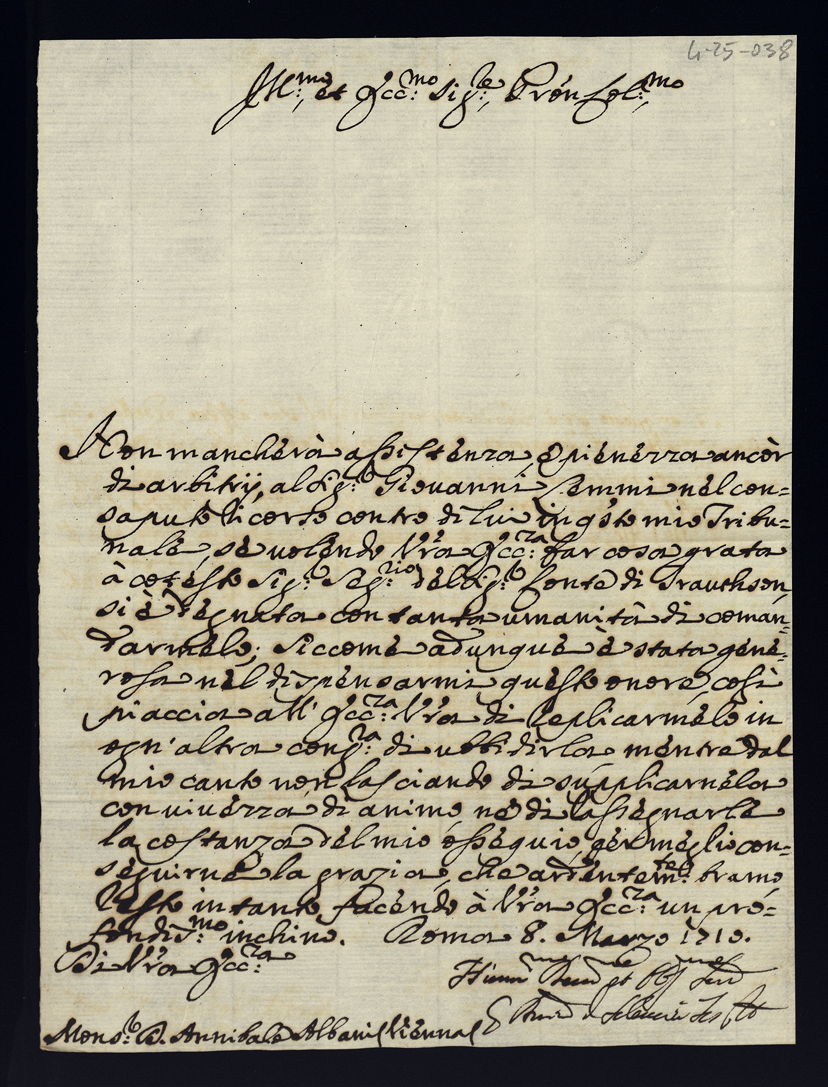 4-25-038
Ill:mo, et Ecc:mo Sig:re, Pron Col:mo
Non mancherà assistenza, e pienezza ancor
di arbitrij, al Sig:r Giovanni Semmi nel con=
saputo licorso contro di lui in qsto mio Tribu=
nale, se volendo Vra Ecc:za far cosa grata
à cotesto Sig:r Seg:rio del Sig:r Conte di Trauthson,
si è degnata con tanta umanità di coman=
darmelo; siccome adunque è stata gene=
rosa nel dispensarmi questo onore, così
piaccia all' Ecc:za Vra di replicarmelo in
ogn' altra cong:ra di ubbidirla mentre dal
mio canto non lasciando di supplicarnela
con vivezza di animo, nè di rassegnarle
la costanza del mio ossequio, per meglio con=
seguirne la grazia, che ardentem:te bramo
resto intanto facendo à Vra Ecc:za un pro=
fondis:mo inchino. Roma 8. Marzo 1710.
Di Vra Ecc:za
Mons:r D. Annibale Albani (Vienna)